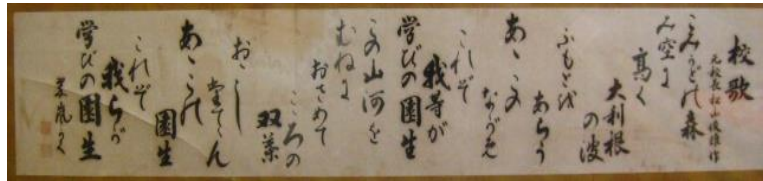 校歌
元校長松山俊雄作
こみかどの森
み空に
高く
大利根
の波
ふもとを
あらう
あゝこの
ながめ
これぞ
我等が
学びの園生
この山河を
むねに
おさめて
こころの
双葉
あゝこの
園生
これぞ
我らが
学びの園生